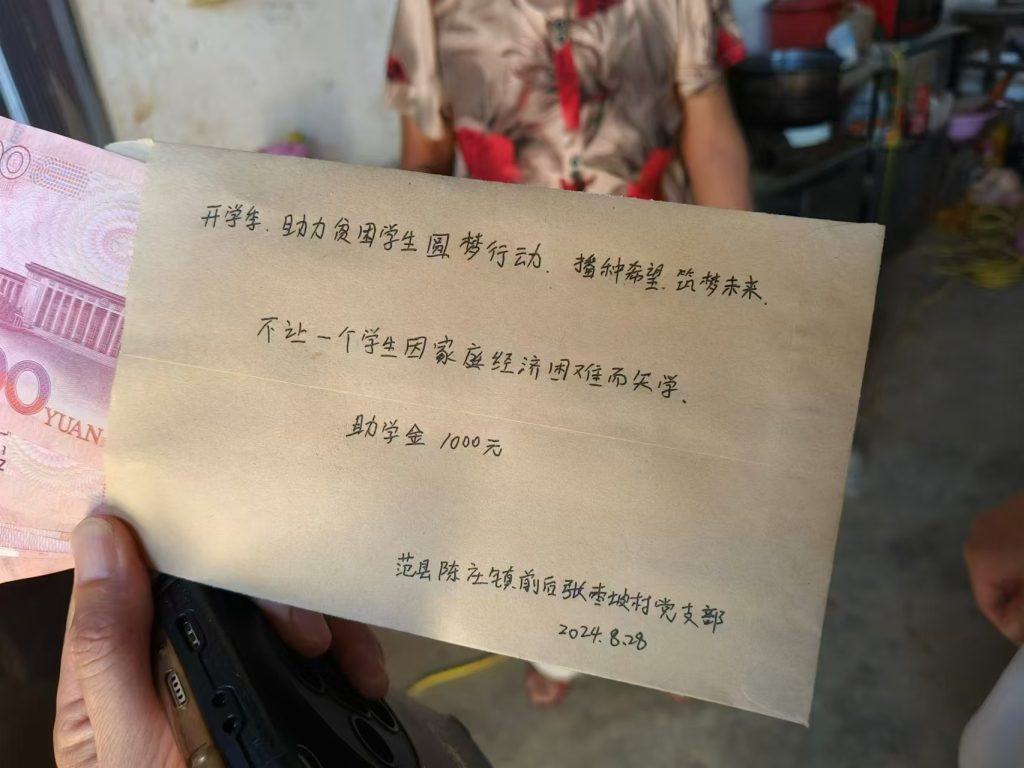 开学季.助力贫困学生圆梦行动.播种希望.筑梦未来.
不让一个学生因家庭经济困难而失学.
助学金 1000元
范县陈庄镇前后张枣坡村党支部
2024.8.28
YUAN